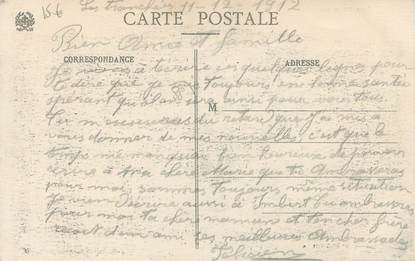 15.6 Les tranchées 11-12 1912
CARTE POSTALE
Bien Amis et famille
CORRESPONDANCE ADRESSE
Je viens à ces quelques ligne pour
te dire que je suis toujours en bonne santée
espérant qu'il en sera ainsi pour vous tous.
M
du retard que j'ai mis a
vous donner de mes nouvelle, c'est que le
temps me manquai bien heureux de pouvoir
écrire à ma chère Marie que tu Ambrassaras
pour moi sommes toujours même situation
Je vien d'écrire aussi à tu ambrasseras
pour moi ta cher maman et ton cher frère
reçoit d'un ami ses meilleures Ambrassades